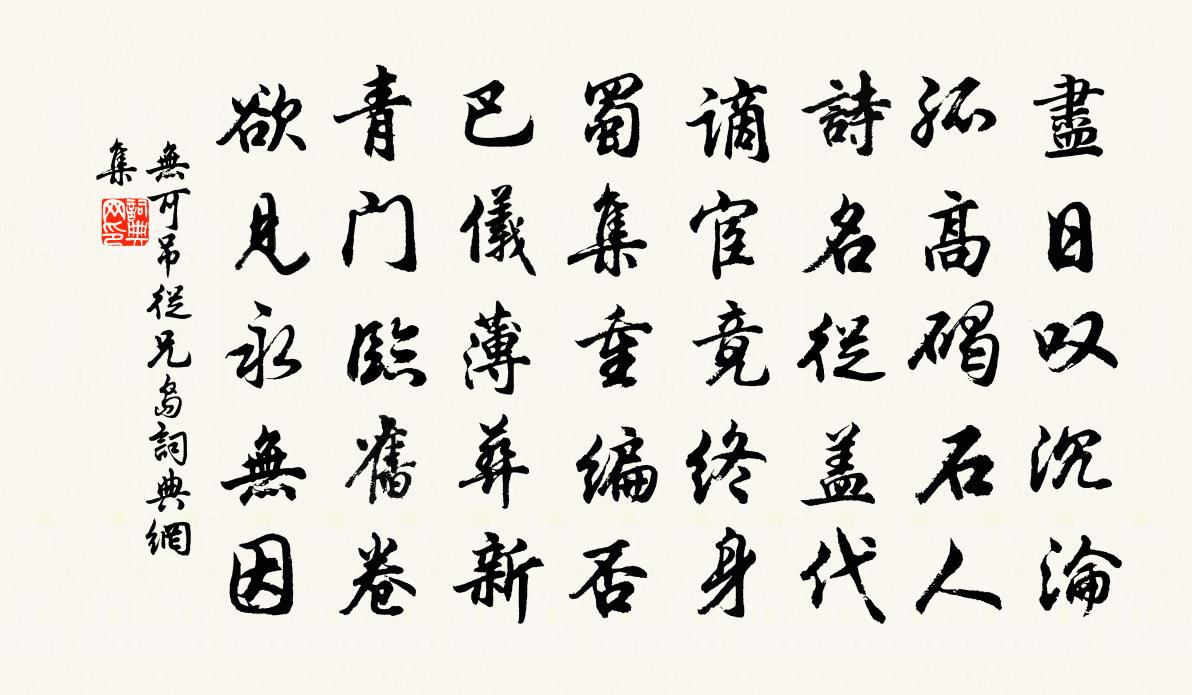 盡日叹沉淪
孤高碣石人
詩名從盖代
謫宦竟终身
蜀集重编否
巴儀薄葬新
青门臨舊卷
欲見永無因
無可吊從兄島詞典網
集
詞典
网印